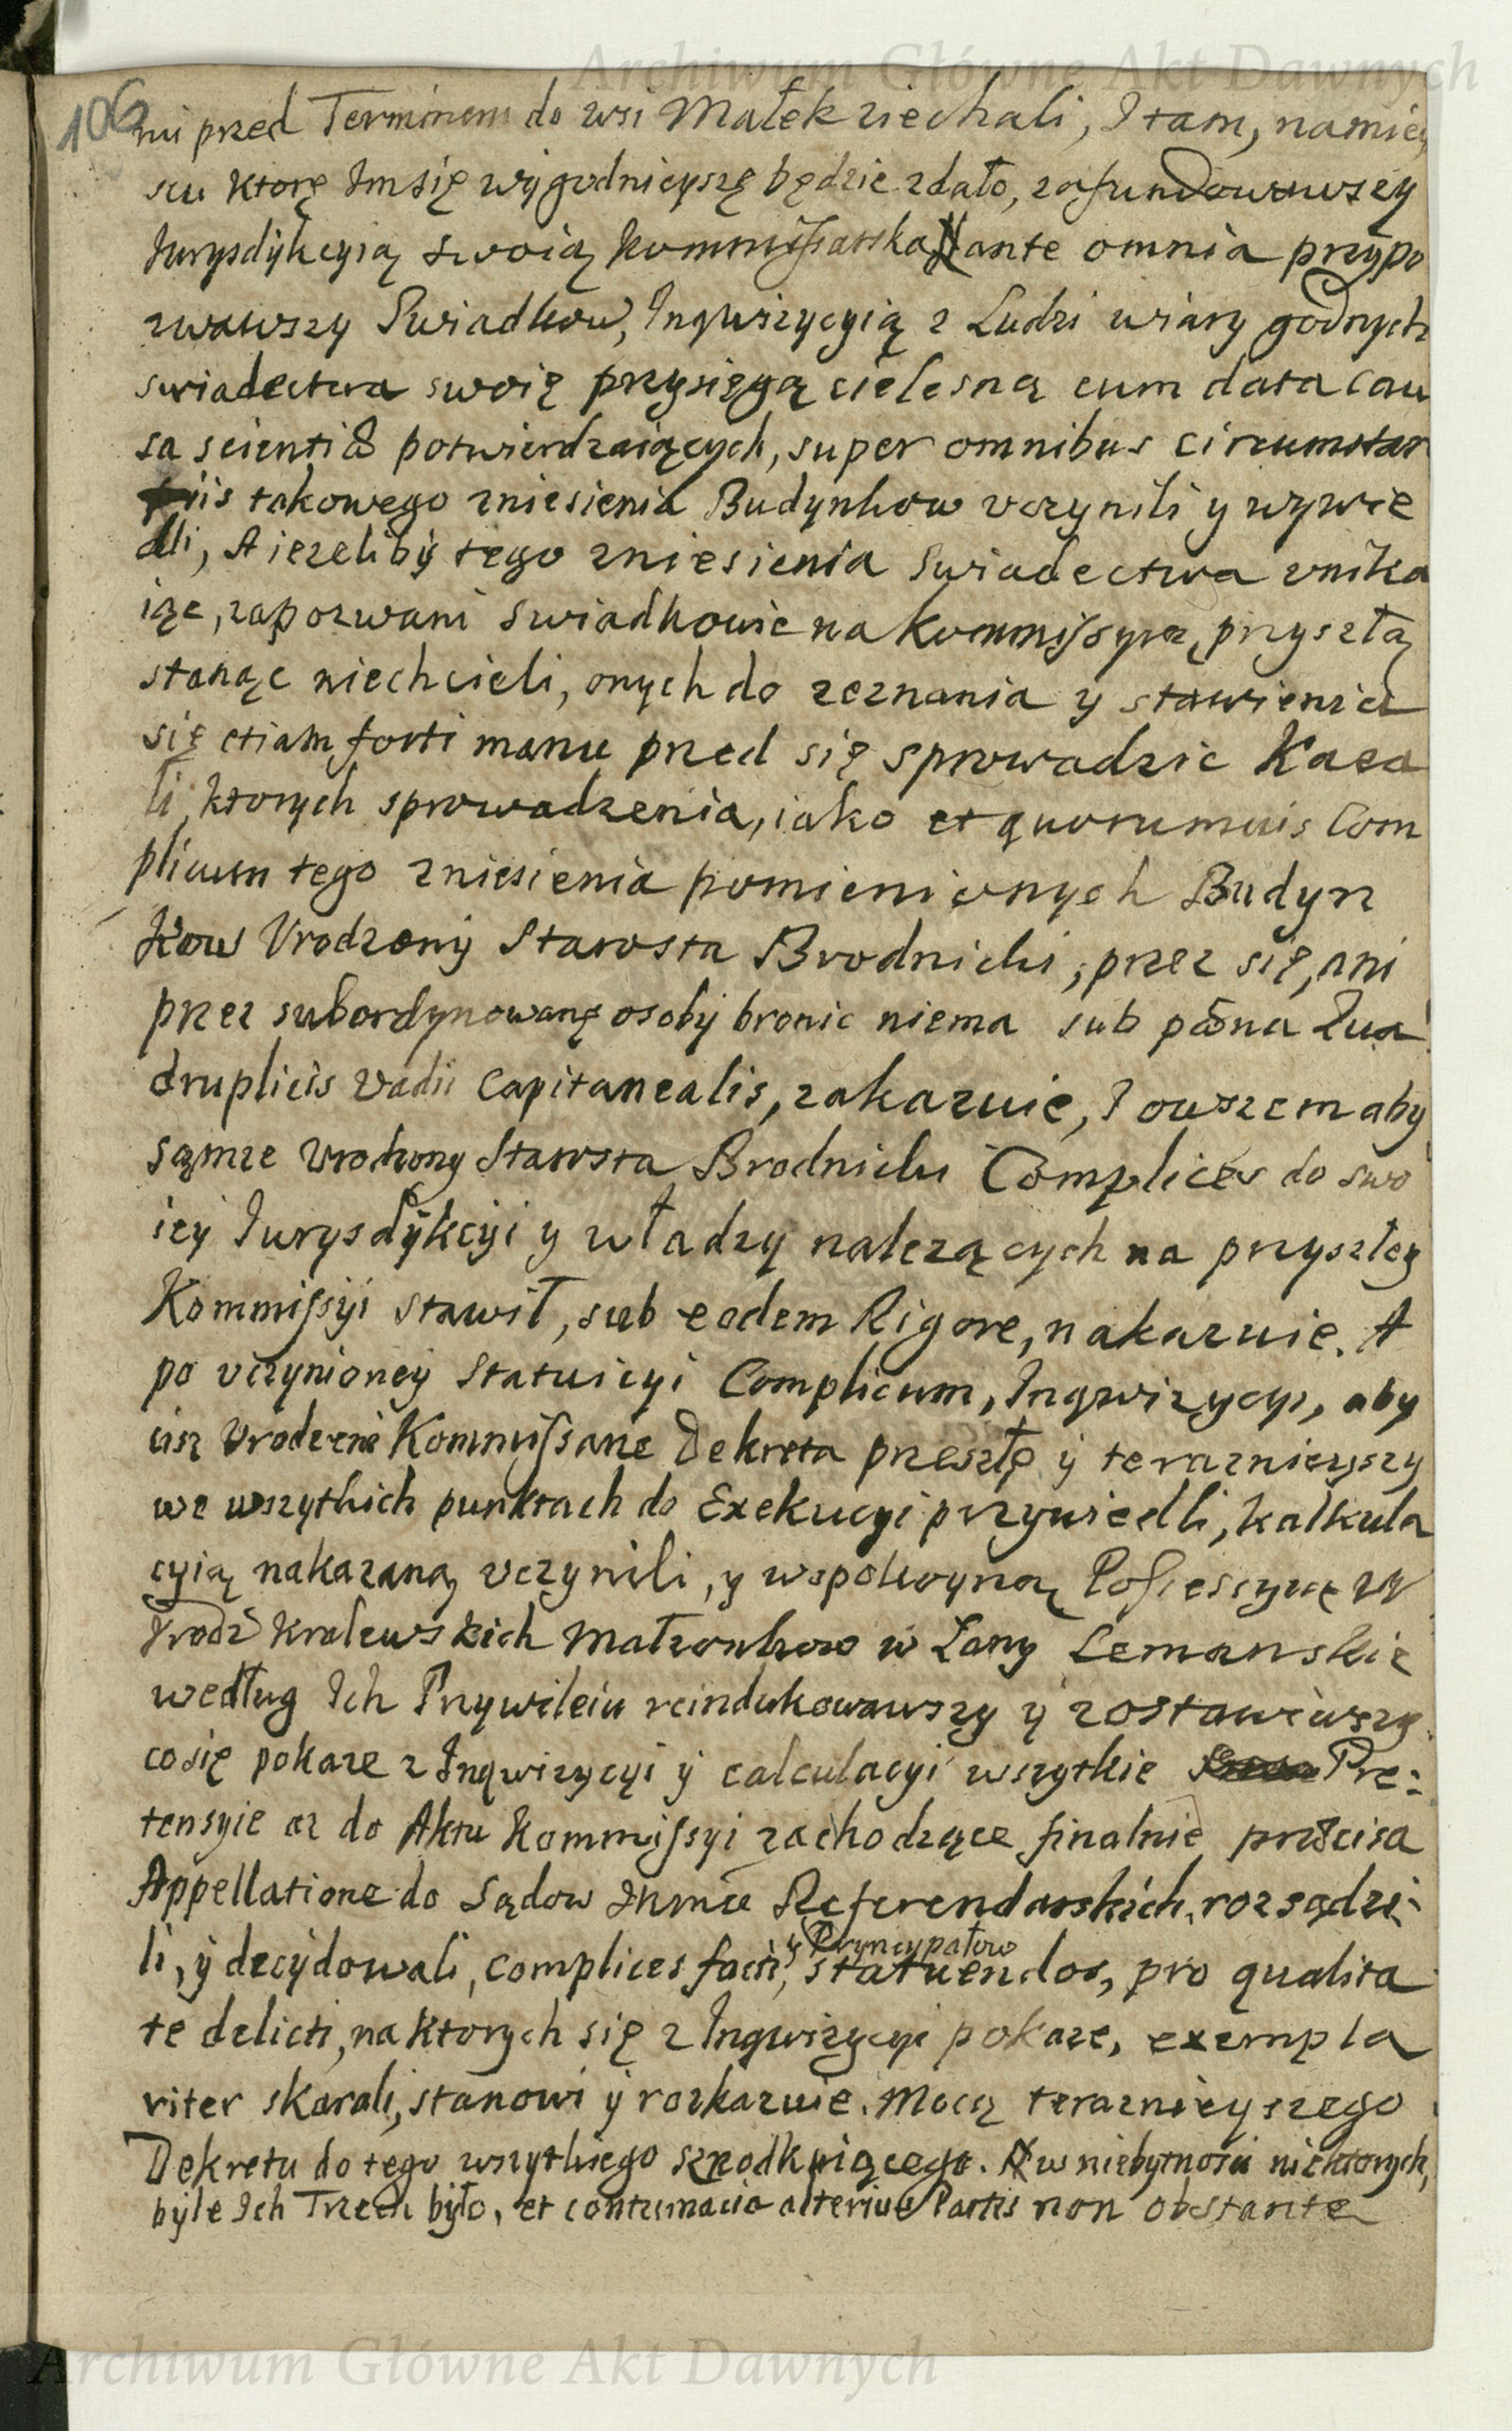 Archiwum Główne Akt Dawnych
106
mi przed Terminem do wsi Małek ziechali, I tam, namiey
scu ktorę Im się wygodnieyszę będzie zdało, zafundowawszy
Iurysdykcyią swoią kommissarska ante omnia przypo
zwawszy Swiadkow, Inqwizycyią z Ludzi wiary godnych
swiadectwa swoię przysięgą cielesną cum data cau
sa scientiæ potwierdzaiących, super omnibus circumstan
tiis takowego zniesienia Budynkow vczynili y wywie
dli, A iezeliby tego zniesienia swiadectwa vnika
iąc, zapozwani swiadkowie na kommissyą przyszłą
stanąc niechcieli, onych do zeznania y stawienia
się etiam forti manu przed się sprowadzic Kaza
li, ktorych sprowadzenia, iako et quorumvis Com
plicum tego zniesienia pomienionych Budyn
kow Vrodzony Starosta Brodnicki, przez się, ani
przez subordynowanę osoby bronic niema sub pœna Qua
druplicis Vadii Capitanealis, zakazuie, I owszem aby
sąmze Vrodzony Starosta Brodnicki Complices do swo
iey Iurysdykcyi y władzy nalezących na przyszłey
Kommissyi stawił, sub eodem Rigore, nakazuie. A
po vczynioney Statuicyi Complicum, Inqwizycyi, aby
ciz Vrodzeni Kommissarze Dekreta przeszłę y teraznieyszy
we wszytkich punktach do Exekucyi przywiedli, kalkula
cyią nakazaną vczynili, y wspokoyną Possessyię
Vrodz Kralewskich Małzonkow w Łany Lemanskie
według Ich Przywileiu reindukowawszy y zostawiwszy
co się pokaze z Inqwizycyi y calculacyi wszytkie Pre:
tensyie az do Aktu Kommissyi zachodzące finalnie præcisa
Appellatione do Sądow Referendarskich, rozsądzi
li, y decydowali, complices facti, y Pryncypałow statuendos, pro qualita
te delicti, na ktorych się z Inqwizycyi pokaze, exempla
riter skarali, stanowi y rozkazuie. Mocą teraznieyszego
Dekretu do tego wszytkiego szrodkuiącego. A w niebytnosci niektorych,
byle Ich Trzech było, et contumacia alterius Partis non obstante
Archiwum Główne Akt Dawnych